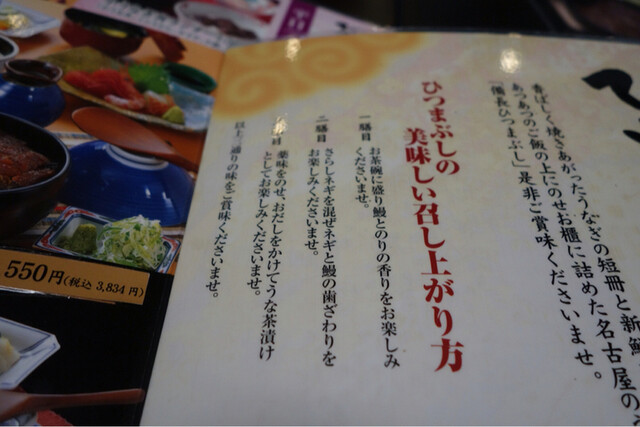 香ばしく焼きあがったうなぎの短冊と新鮮
あつあつのご飯の上にのせお櫃に詰めた名古屋の
「備長ひつまぶし」是非ご賞味くださいませ。
ひつまぶしの
美味しい召し上がり方
一膳目
お茶碗に盛り鰻とのりの香りをお楽しみ
くださいませ。
二膳目
さらしネギを混ぜネギと鰻の歯ざわりを
お楽しみくださいませ。
膳目
薬味をのせ、おだしをかけてうな茶漬け
としてお楽しみくださいませ。
以上三通りの味をご賞味くださいませ。
550円(税込 3,834円)